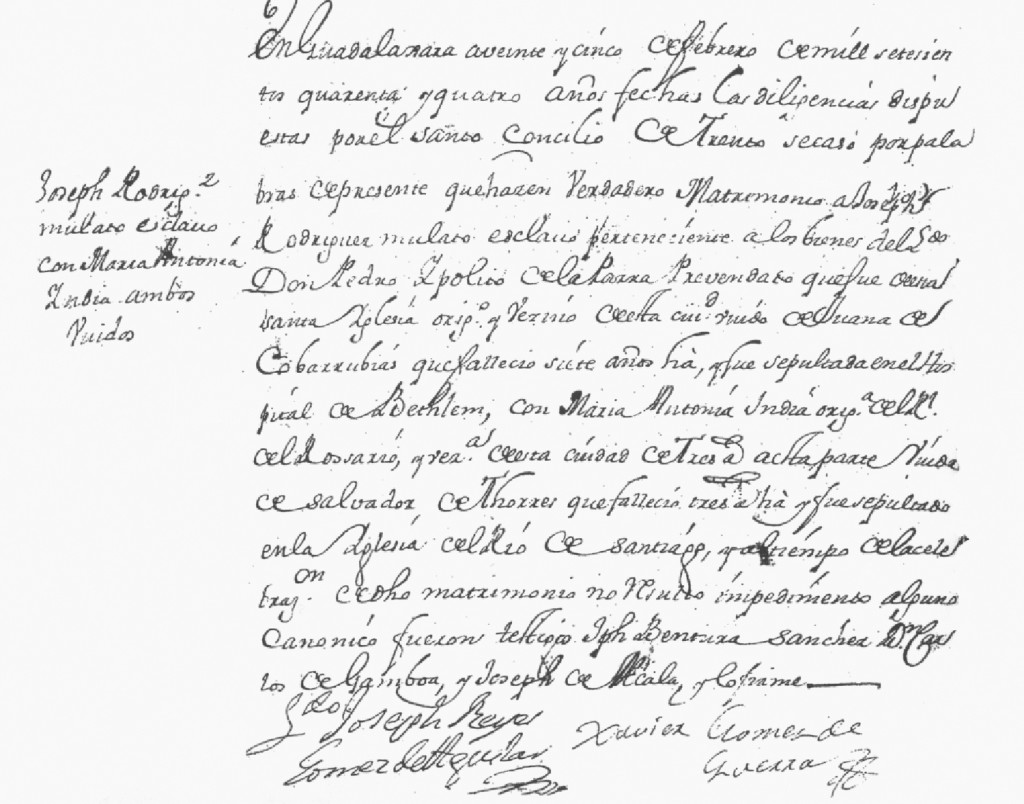 En Guadalaxara a veinte y cinco de febrero de mill setesien
tos quarenta y quatro años fechas las diligencias dispu
estas por el santo Concilio de Trento se casó por pala
bras de presente que hazen Verdadero Matrimonio a Joseph
Rodriguez mulato esclavo perteneciente a los bienes del Ldo
Don Pedro Ypolito de la Parra Prevendado que fue de esta
santa Yglesia orig.º y Vezino de esta ciu.d viudo de Juana de
Cobarrubias que fallecio siete años hà, y fue sepultada en el Hos
pital de Bethlem, con Maria Antonia India orig.a de el Rl.
de el Rossario, y vez.a de esta ciudad de tres a.s a esta parte Viuda
de Salvador de Thorres que fallecio tres a.s hà y fue sepultado
en la Yglesia de el Rio de Santiago, y al tiempo de la cele
braz.on de dho matrimonio no resulto impedimento alguno
Canonico fueron testigos Jph Bentura Sanchez D.n Car
los de Gamboa, y Joseph de Alcala, y lo firme
Joseph Rodrig.z
mulato esclavo
con Maria Antonia
India ambos
Viudos
Ldo Joseph Reyes
Gomez de Aguilar
Xavier Gomez de
Guerra